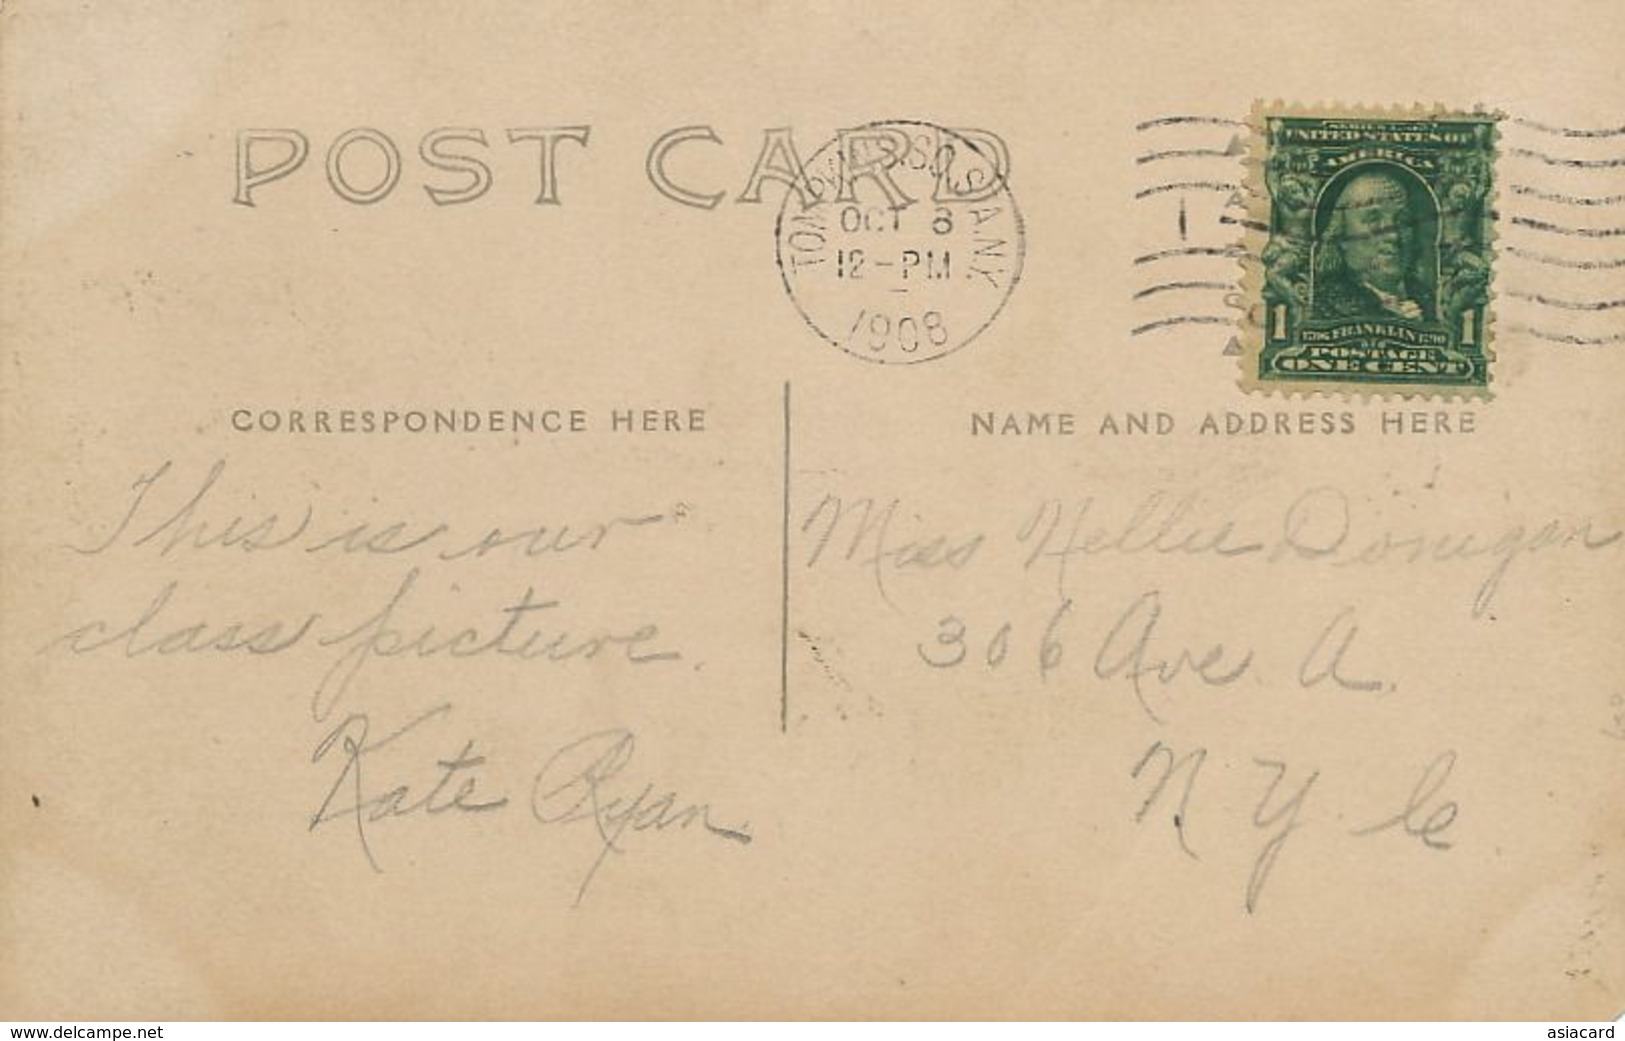 POST CARD
TOMPKINS. SQ. STA. N.Y.
OCT 8
12-PM
1908
1
SERIES 1902
UNITED STATES OF
AMERICA
1 1706 FRANKLIN 1790 1
POSTAGE
ONE CENT
CORRESPONDENCE HERE
This is our
class picture.
Kate Ryan
NAME AND ADDRESS HERE
Miss Nellie Donigan
306 Ave. A.
N. Y. C
www.delcampe.net
asiacard